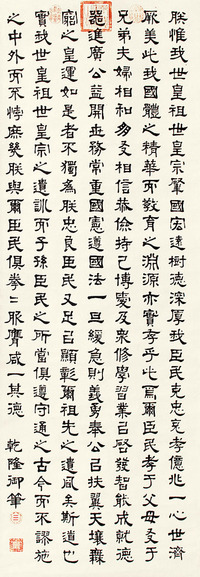 朕惟我世皇祖世皇宗鞏國宏遠樹德深厚我臣民克忠克孝億兆一心世濟
厥美此我國體之精華而教育之淵源亦實存乎此爲爾臣民孝于父母友于
兄弟夫婦相和朋友相信恭儉持己博愛及衆修學習業㠯啓發智能成就德
器進廣公益開世務常重國憲遵國法一旦緩急則義勇奉公㠯扶翼天壤無
窮之皇運如是者不獨爲朕忠良臣民又足㠯顯彰爾祖先之遺風矣斯道也
實我世皇祖世皇宗之遺訓而子孫臣民之所當俱遵守通之古今而不謬施
之中外而不悖庶幾朕與爾臣民俱拳〻服膺咸一其德 乾隆御筆